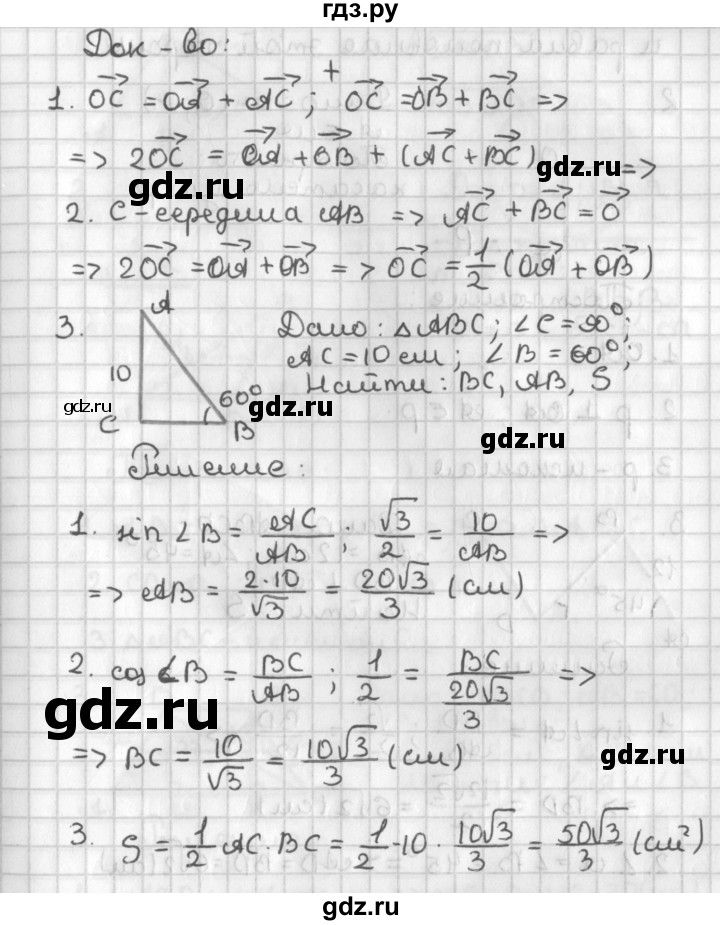 гдз.ру
Док-во:
+
1. OC = OA + AC ; OC = OB + BC =>
=> 2OC = OA + OB + (AC + BC) =>
gdz.ru gdz.ru
2. C - середина AB => AC + BC = 0
=> 2OC = OA + OB => OC = 1/2 (OA + OB)
3. A Дано: △ABC; ∠C = 90°;
10 AC = 10 см; ∠B = 60°;
60° Найти: BC, AB, S
gdz.ru gdz.ru
C B
gdz.ru
Решение:
1. sin ∠B = AC/AB ; √3/2 = 10/AB =>
=> AB = 2·10/√3 = 20√3/3 (см)
gdz.ru
2. cos ∠B = BC/AB ; 1/2 = BC/(20√3/3) =>
gdz.ru
=> BC = 10/√3 = 10√3/3 (см)
gdz.ru
3. S = 1/2 AC·BC = 1/2·10·10√3/3 = 50√3/3 (см²)
gdz.ru